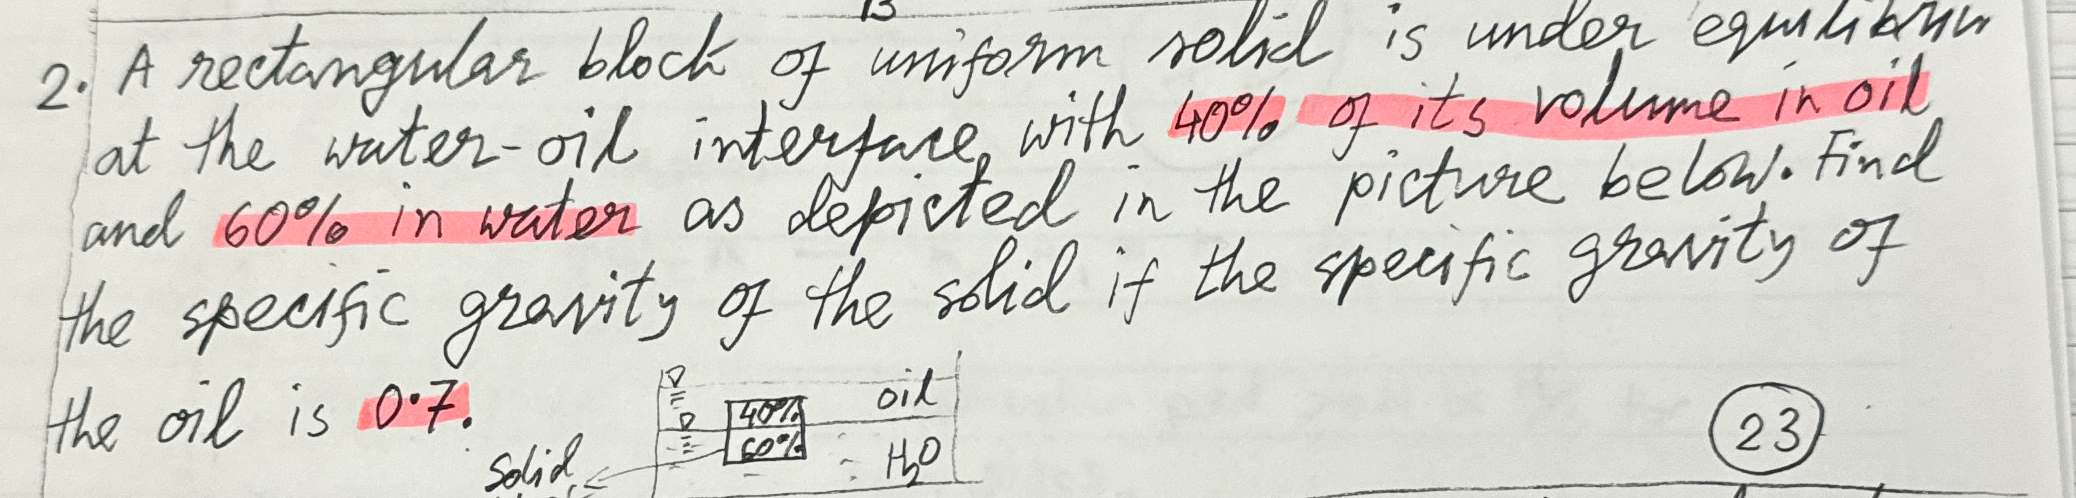 13
2. A rectangular block of uniform solid is under equilibrium
at the water-oil interface, with 40% of its volume in oil
and 60% in water as depicted in the picture below. Find
the specific gravity of the solid if the specific gravity of
the oil is 0.7.
oil
40%
60%
H₂O
solid
23